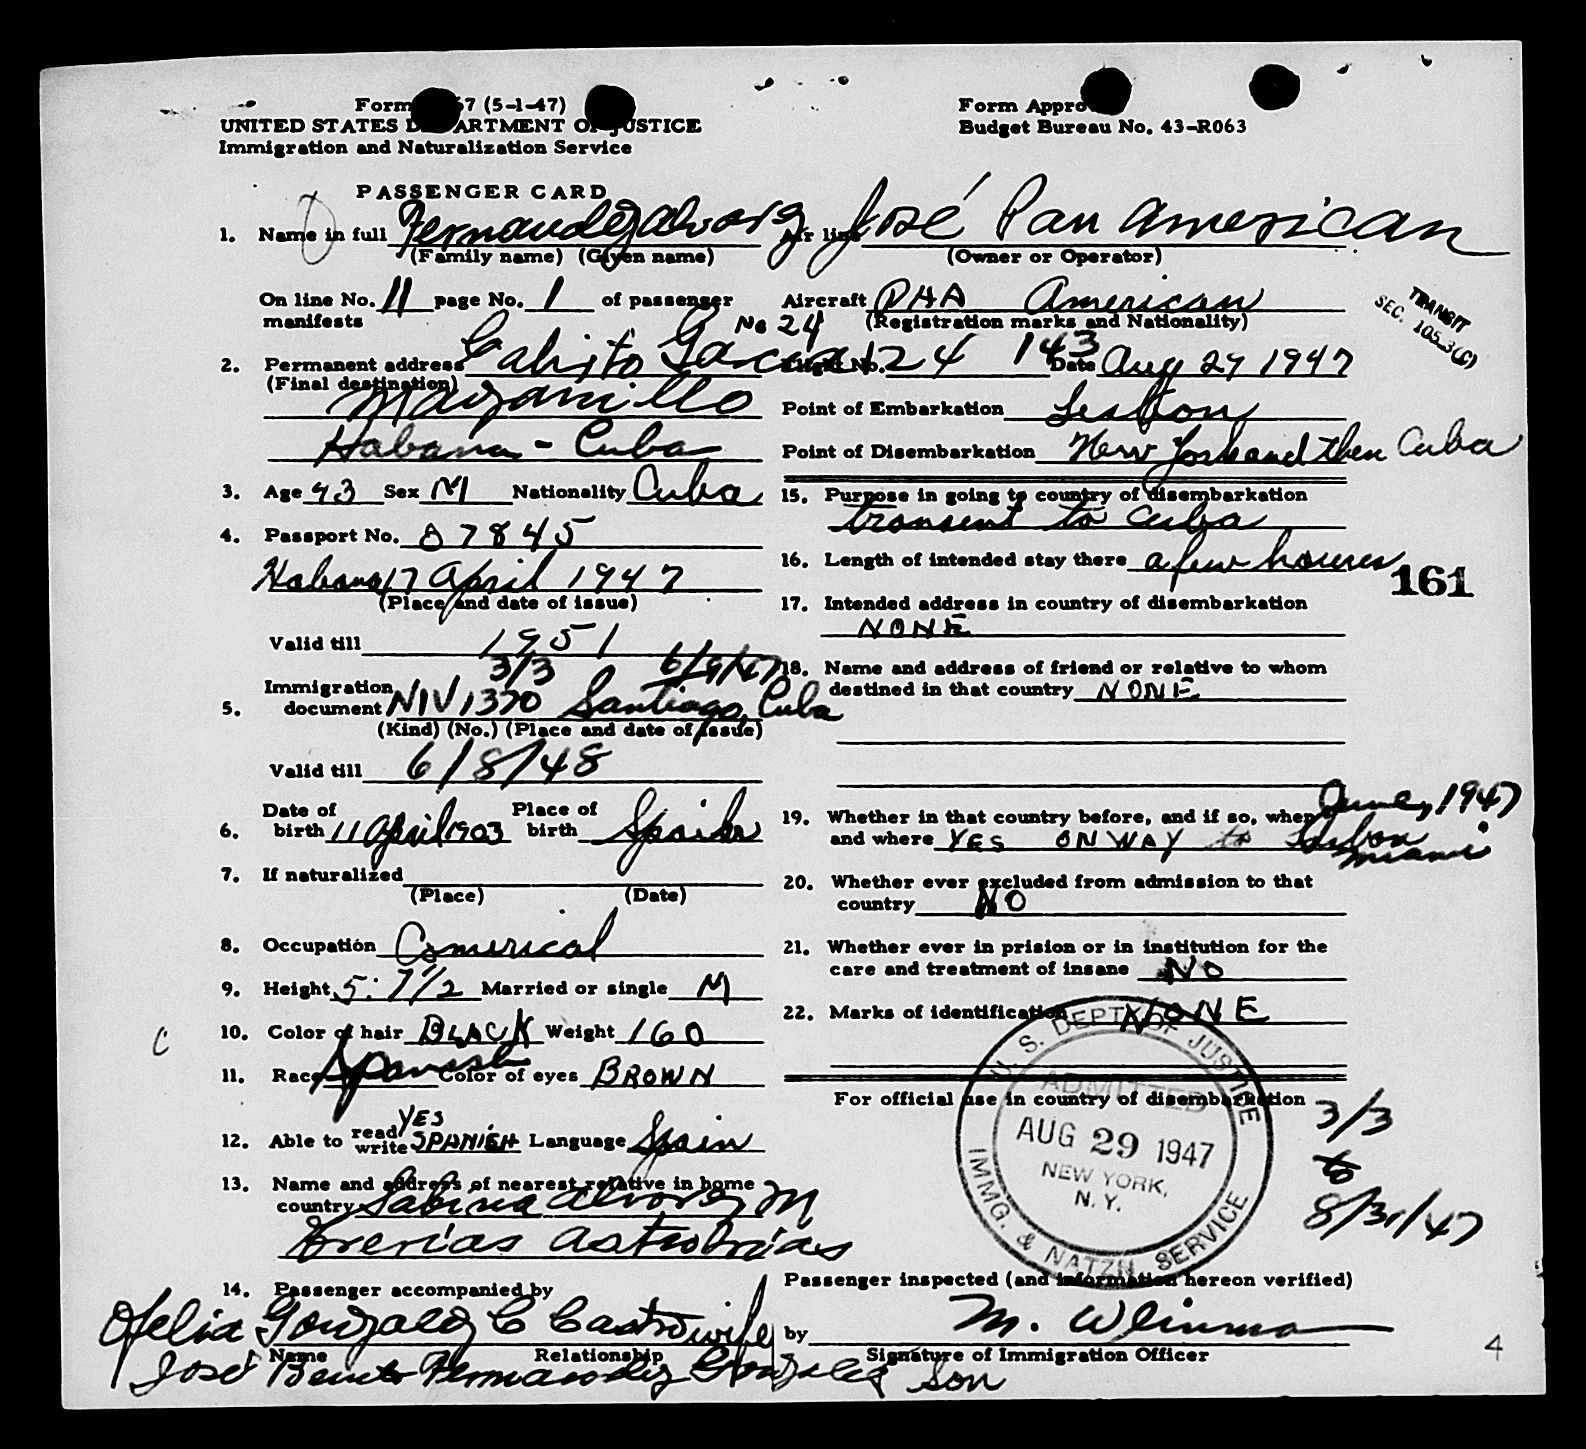 Form 57 (5-1-47)
UNITED STATES DEPARTMENT OF JUSTICE
Immigration and Naturalization Service
Form Appro
Budget Bureau No. 43-R063
PASSENGER CARD
1. Name in full Fernandez Alvarez José
(Family name) (Given name)
Air line Pan American
(Owner or Operator)
On line No. 11 page No. 1 of passenger
manifests
Aircraft PAA American
(Registration marks and Nationality)
TRANSIT
SEC. 105.3(C)
2. Permanent address Calixto Garcia No 24
(Final destination)
Manzanillo
Habana - Cuba
Flight No. 124 143 Date Aug 27 1947
Point of Embarkation Lisbon
Point of Disembarkation New York and then Cuba
3. Age 43 Sex M Nationality Cuba
4. Passport No. 07845
Habana 17 April 1947
(Place and date of issue)
Valid till 1951
5. Immigration document NIV 1370 3/3 Santiago, Cuba 6/9/47
(Kind) (No.) (Place and date of issue)
Valid till 6/8/48
6. Date of birth 11 April 1903 Place of birth Spain
7. If naturalized
(Place) (Date)
8. Occupation Comerical
9. Height 5:7 1/2 Married or single M
10. Color of hair BLACK Weight 160
C
11. Race Spanish Color of eyes BROWN
12. Able to read write YES SPANISH Language Spain
13. Name and address of nearest relative in home
country Sabina Alvarez M
14. Passenger accompanied by
Ofelia Gonzalez C Castro wife
Name Relationship
José Benito Fernandez Gonzalez Son
15. Purpose in going to country of disembarkation
transent to Cuba
16. Length of intended stay there a few houres
161
17. Intended address in country of disembarkation
NONE
18. Name and address of friend or relative to whom
destined in that country NONE
19. Whether in that country before, and if so, when June, 1947
and where YES ON WAY to Lisbon
Miami
20. Whether ever excluded from admission to that
country NO
21. Whether ever in prision or in institution for the
care and treatment of insane NO
22. Marks of identification NONE
For official use in country of disembarkation
U. S. DEPT. OF JUSTICE
ADMITTED
AUG 29 1947
NEW YORK,
N. Y.
IMMG. & NATZN. SERVICE
3/3
to
8/31/47
Passenger inspected (and information hereon verified)
by M.
Signature of Immigration Officer
4